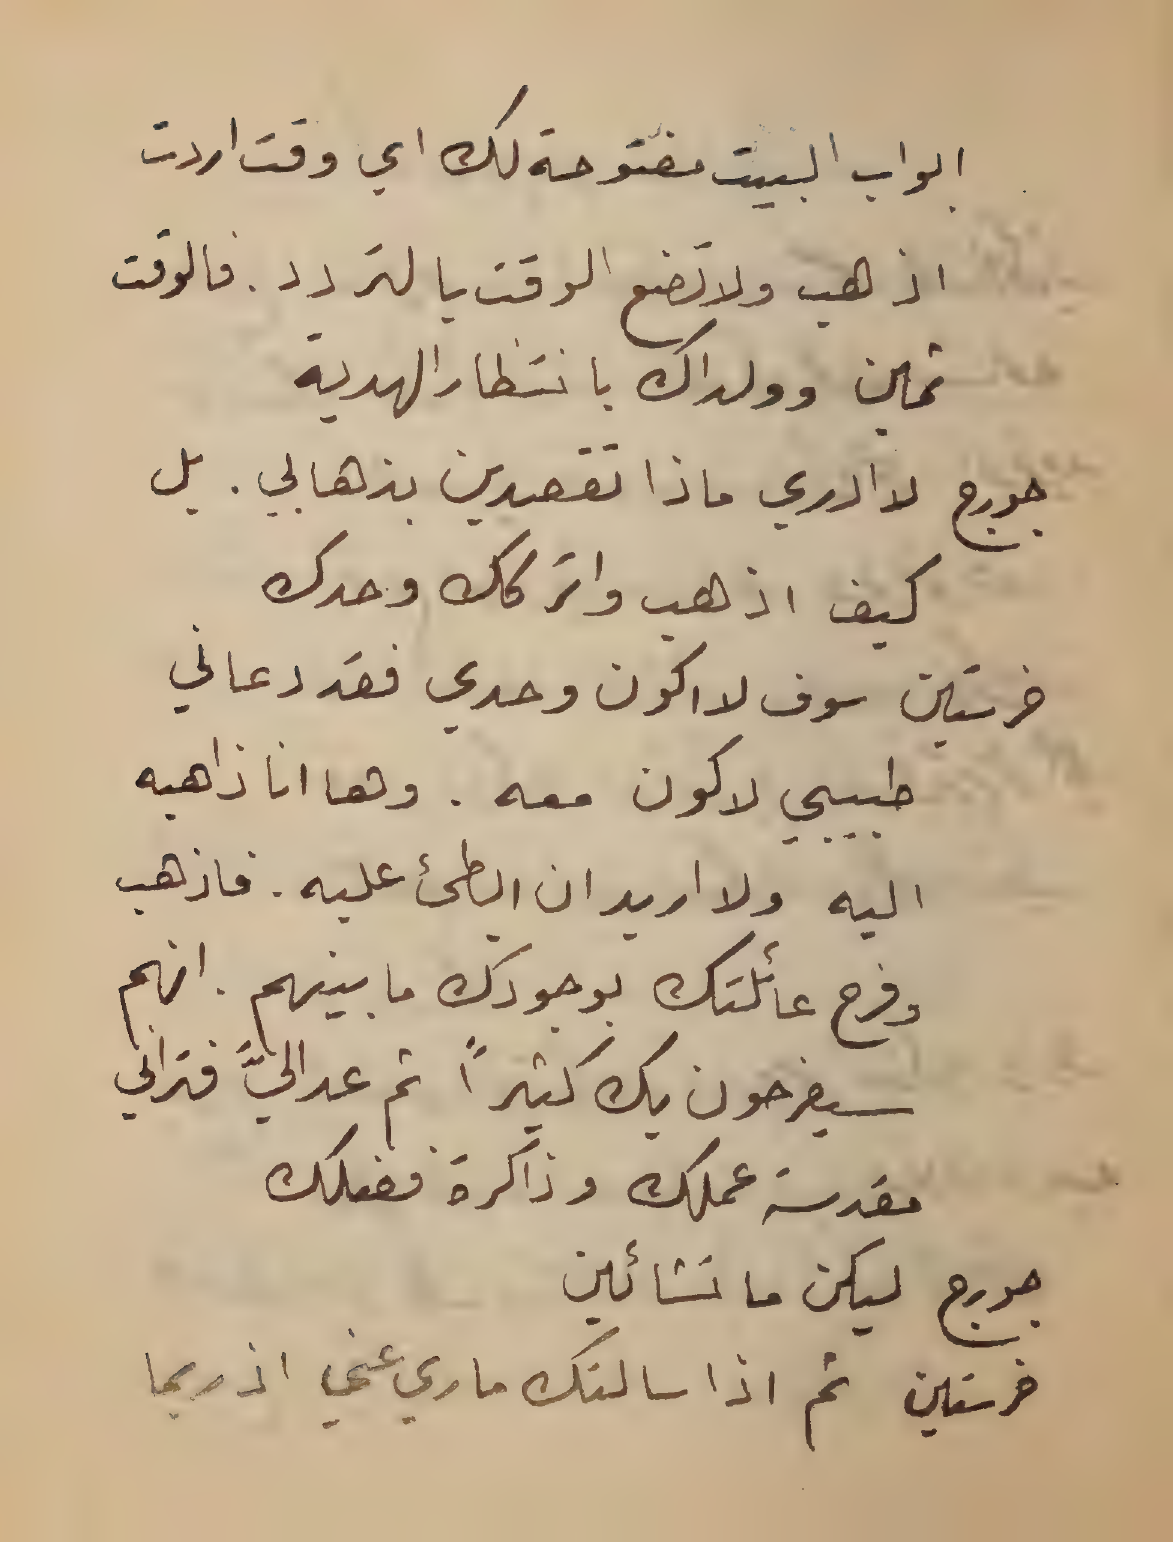 ابواب البيت مفتوحة لك اي وقت اردت
اذهب ولا تضع الوقت بالتردد . فالوقت
ثمين وولداك بانتظار الهدية
جورج لا ادري ماذا تقصدين بذهابي . بل
كيف اذهب واتركك وحدك
خرستين سوف لا اكون وحدي فقد دعاني
طبيبي لاكون معه . وها انا ذاهبه
اليه ولا اريد ان ابطئ عليه . فاذهب
وفرح عائلتك بوجودك ما بينهم . انهم
سيفرحون بك كثيراً ثم عد اليَّ فتراني
مقدسة عملك وذاكرة فضلك
جورج ليكن ما تشائين
خرستين ثم اذا سالتك ماري عني اذ ربما